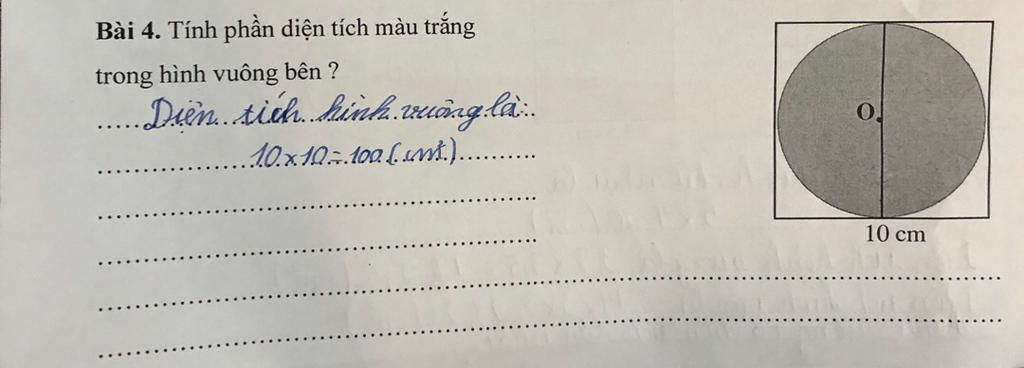 Bài 4. Tính phần diện tích màu trắng
trong hình vuông bên ?
Diện tích hình vuông là:
10 x 10 = 100 (cm²)
O
10 cm